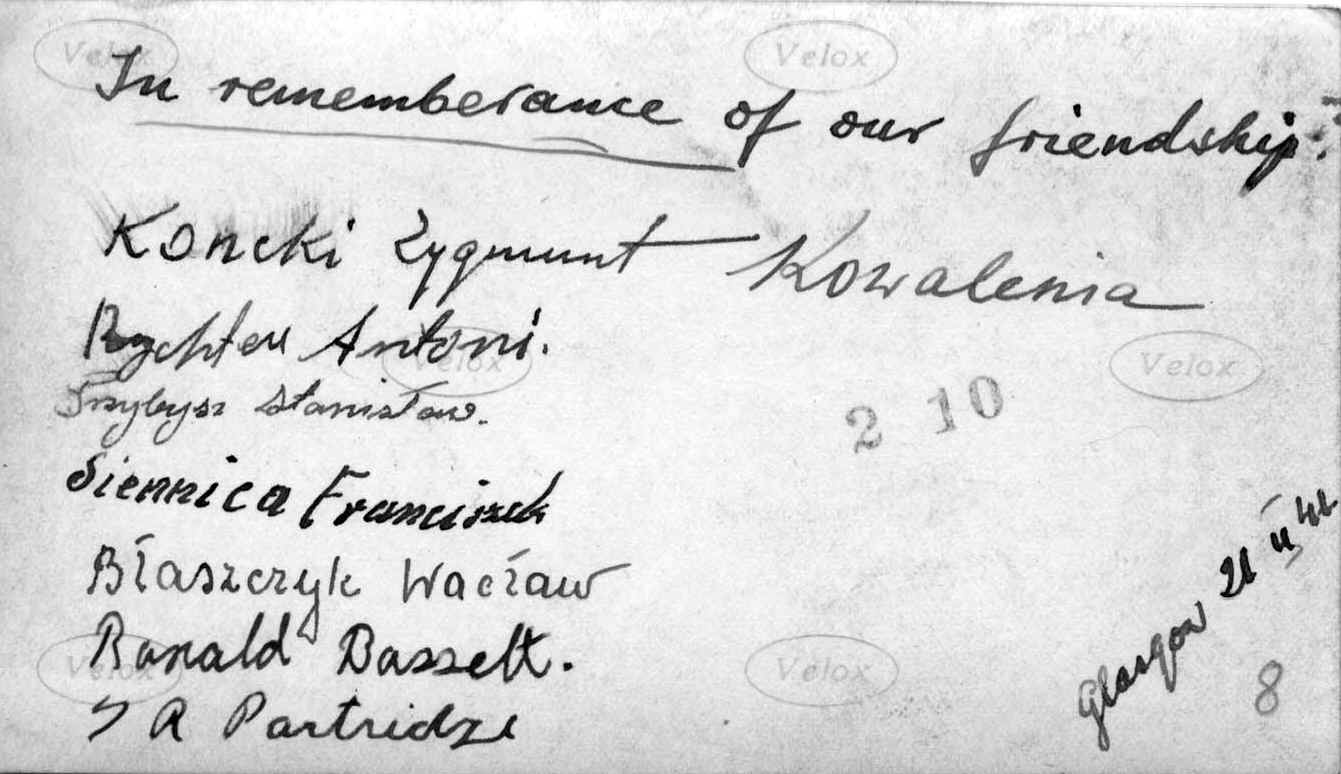 In rememberance of our friendship.
Koncki Zygmunt Kowalenia
Rychter Antoni.
Przybysz Stanisław.
Siennica Franciszek
Błaszczyk Wacław
Ronald Bassett.
R Partridze
Glasgow 21 II 44
2 10
8
Velox
Velox
Velox
Velox
Velox
Velox